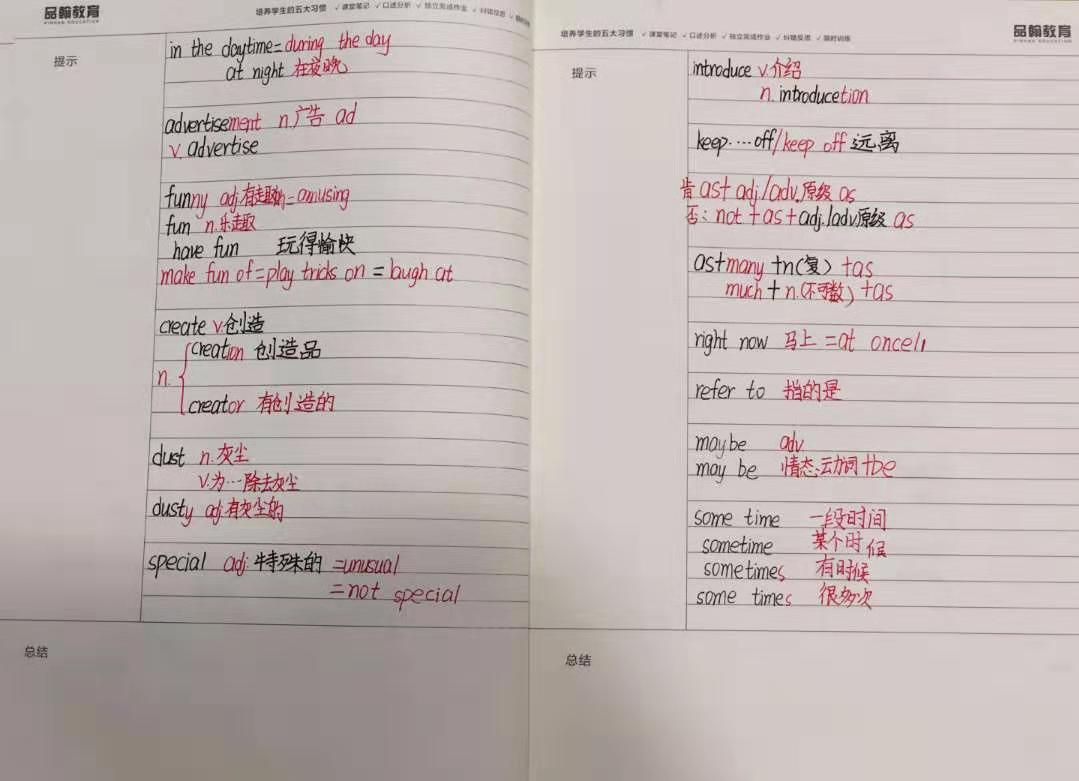 品翰教育
PINHAN EDUCATION
培养学生的五大习惯 ✓课堂笔记 ✓口述分析 ✓独立完成作业 ✓纠错反思 ✓限时
提示
in the daytime=during the day
at night 在夜晚
advertisement n.广告 ad
v. advertise
funny adj.有趣的=amusing
fun n.乐趣
have fun 玩得愉快
make fun of=play tricks on = laugh at
create v.创造
n. creation 创造品
creator 有创造的
dust n.灰尘
v.为…除去灰尘
dusty adj.有灰尘的
special adj.特殊的 =unusual
=not special
总结
培养学生的五大习惯 ✓课堂笔记 ✓口述分析 ✓独立完成作业 ✓纠错反思 ✓限时训练
品翰教育
PINHAN EDUCATION
提示
introduce v.介绍
n. introducetion
keep····off/keep off 远离
肯 as+ adj./adv.原级 as
否: not +as+adj./adv原级 as
as+many +n(复) +as
much+ n.(不可数) +as
right now 马上 =at once
refer to 指的是
maybe adv.
may be 情态动词+be
some time 一段时间
sometime 某个时候
sometimes 有时候
some times 很多次
总结